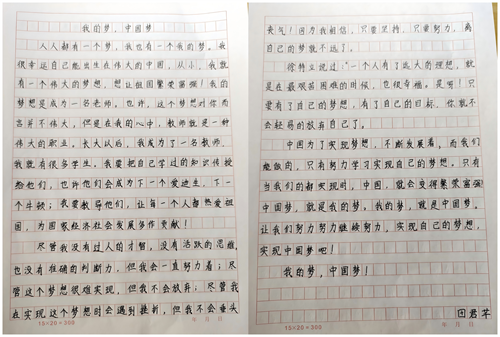 我的梦，中国梦
人人都有一个梦，我也有一个我的梦。我
很幸运自己能出生在伟大的中国，从小，我就
有一个伟大的梦想，想让祖国繁荣富强！我的
梦想是成为一名老师。也许，这个梦想对你而
言并不伟大，但是在我的心中，教师就是一种
伟大的职业，长大以后，我成为了一名教师，
我就有很多学生。我要把自己学过的知识传授
给他们，也许他们会成为下一个爱迪生，下一
个牛顿；我要教导他们，让每一个人都热爱祖
国，为国家经济社会发展多作贡献！
尽管我没有过人的才智，没有活跃的思维，
也没有准确的判断力，但我会一直努力着；尽
管这个梦想很难实现，但我不会放弃；尽管我
在实现这个梦想时会遇到挫折，但我不会垂头
15×20=300
年 月 日
丧气！因为我相信，只要坚持，只要努力，离
自己的梦就不远了。
徐特立说过：“一个人有了远大的理想，就
是在最艰苦困难的时候，也很幸福。是啊！只
要有了自己的梦想，有了自己的目标，你就不
会轻易的放弃自己了。
中国为了实现梦想，不断发展着，而我们
能做的，只有努力学习实现自己的梦想。只有
当我们的都实现时，中国，就会变得繁荣富强！
中国梦，就是我的梦，我的梦，就是中国梦。
让我们努力努力继续努力，实现自己的梦想，
实现中国梦吧！
我的梦，中国梦！
田君芊
15×20=300
年 月 日